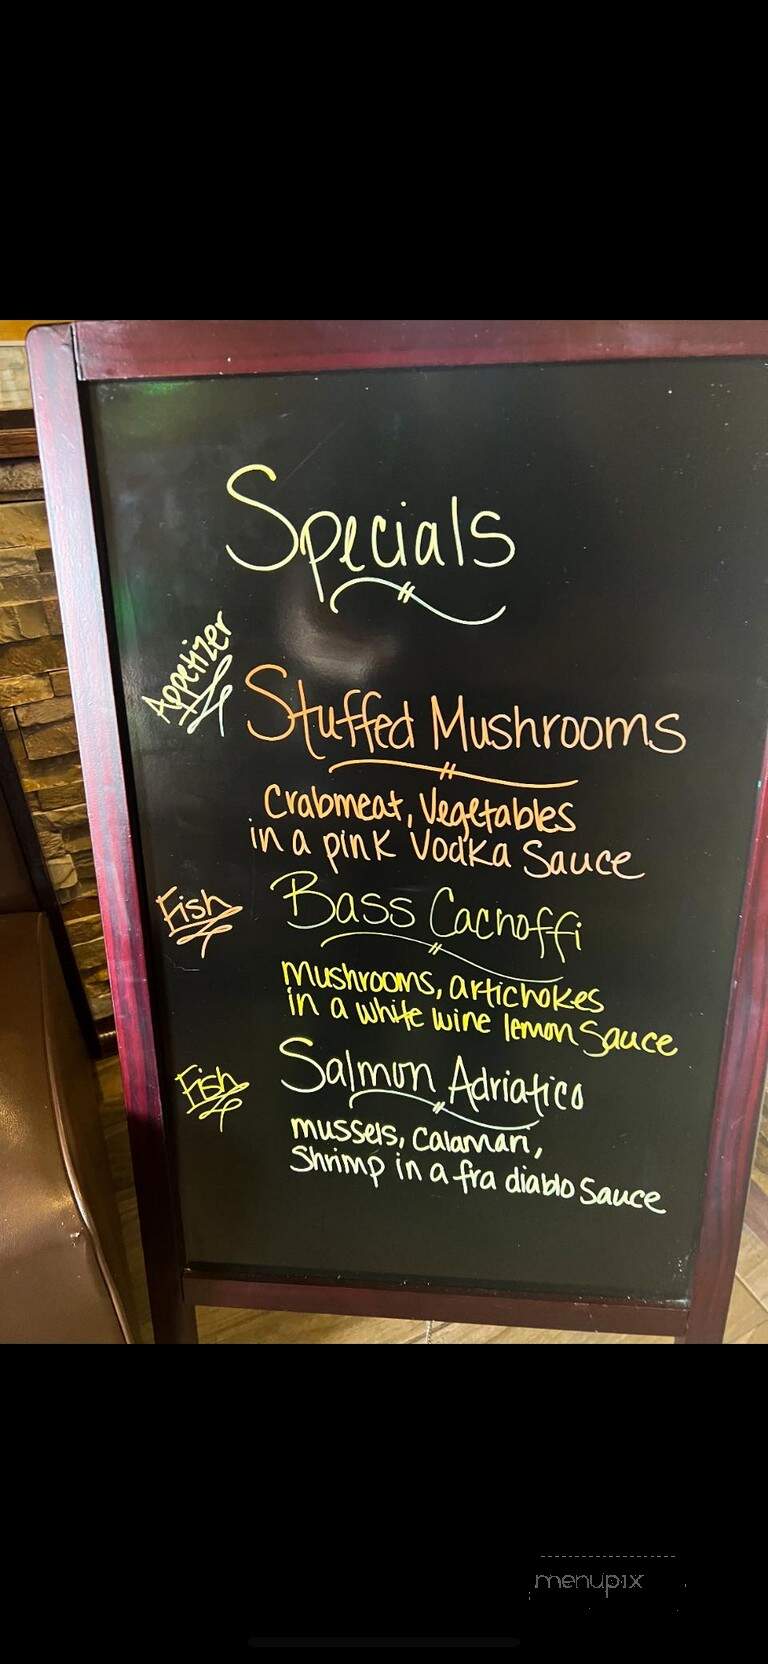 Specials
Appetizer
Stuffed Mushrooms
Crabmeat, Vegetables
in a pink Vodka Sauce
Fish
Bass Cacnoffi
mushrooms, artichokes
in a white wine lemon Sauce
Fish
Salmon Adriatico
mussels, Calamari,
Shrimp in a fra diablo Sauce
menupix